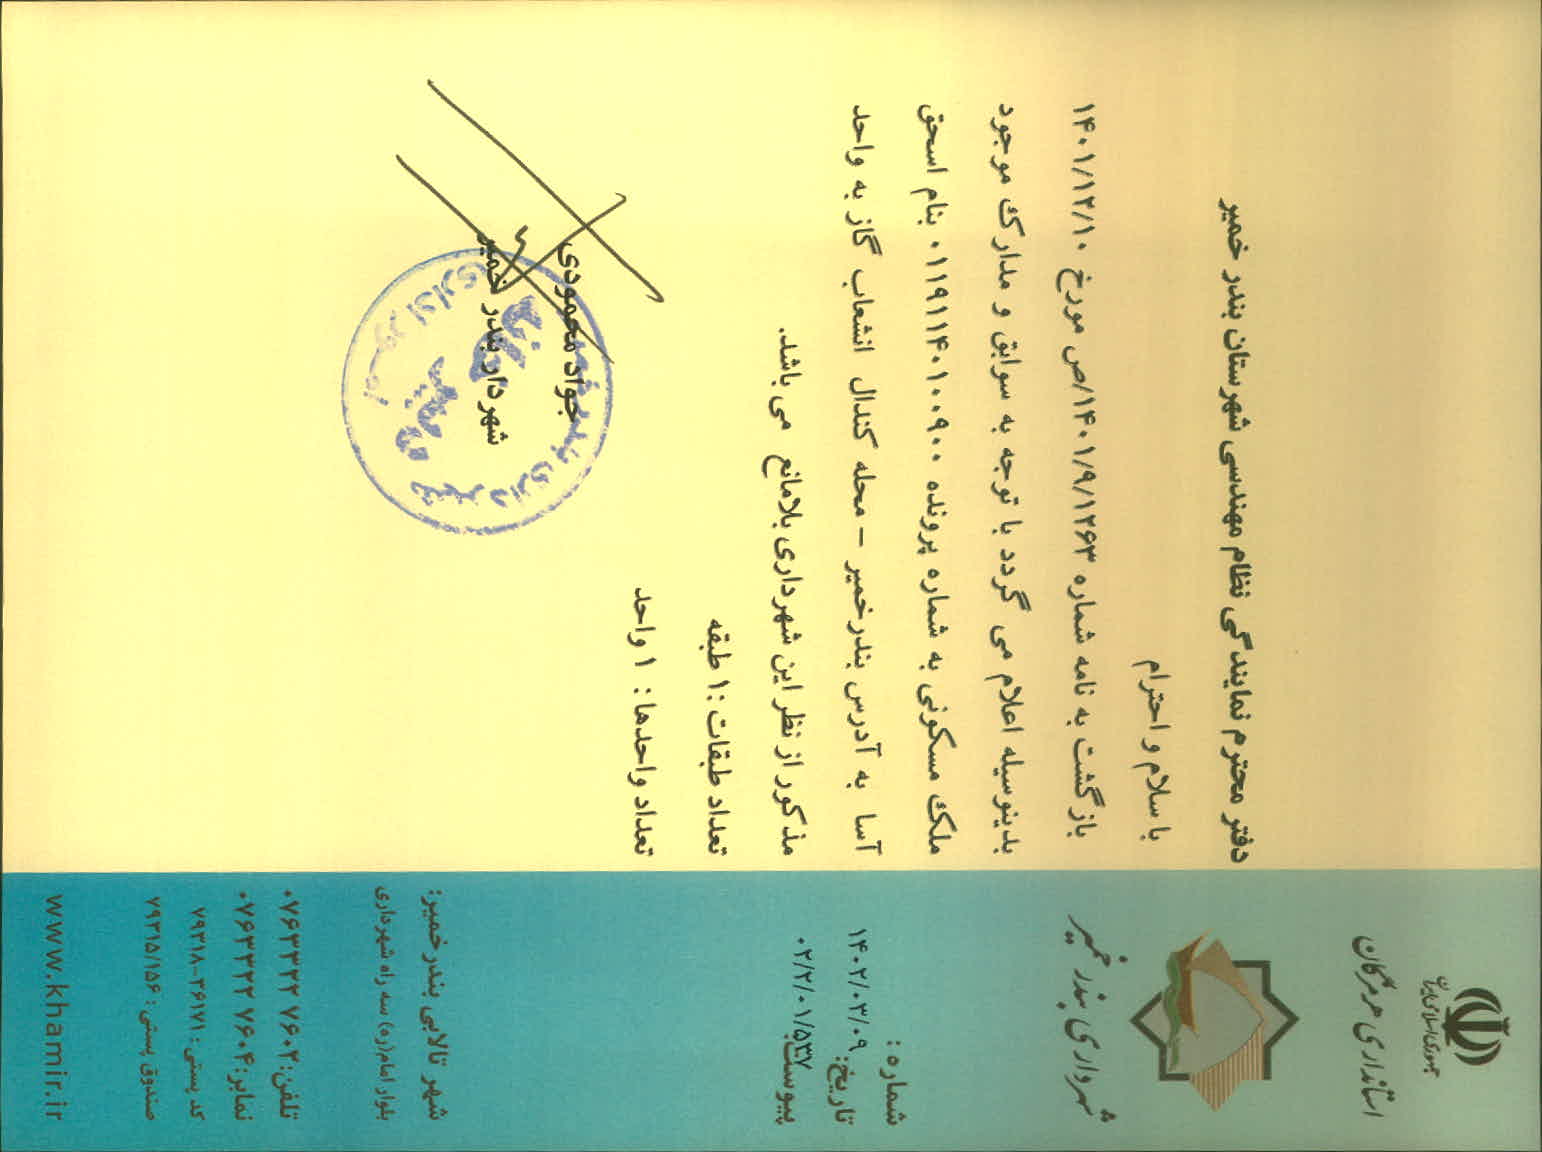 جمهوری اسلامی ایران
استانداری هرمزگان
شهرداری بندر خمیر
شماره :
تاریخ: ۱۴۰۲/۰۳/۰۹
پیوست: ۰۲/۲/۰۱/۵۳۷
شهر تالابی بندرخمیر:
بلوار امام(ره) سه راه شهرداری
تلفن: ۰۷۶۳۳۲۲ ۷۶۰۲
نمابر: ۰۷۶۳۳۲۲ ۷۶۰۴
کد پستی : ۳۶۱۷۱-۷۹۳۱۸
صندوق پستی : ۷۹۳۱۵/۱۵۶
www.khamir.ir
دفتر محترم نمایندگی نظام مهندسی شهرستان بندر خمیر
با سلام و احترام
بازگشت به نامه شماره ۱۴۰۱/۹/۱۲۶۳/ص مورخ ۱۴۰۱/۱۲/۱۰
بدینوسیله اعلام می گردد با توجه به سوابق و مدارک موجود
ملک مسکونی به شماره پرونده ۰۱۱۹۱۱۴۰۱۰۰۹۰۰ بنام اسحق
آسا به آدرس بندرخمیر – محله کندال انشعاب گاز به واحد
مذکور از نظر این شهرداری بلامانع می باشد.
تعداد طبقات :۱ طبقه
تعداد واحدها : ۱ واحد
جواد محمودی
شهردار بندر خمیر
شهرداری بندر خمیر
امور اداری